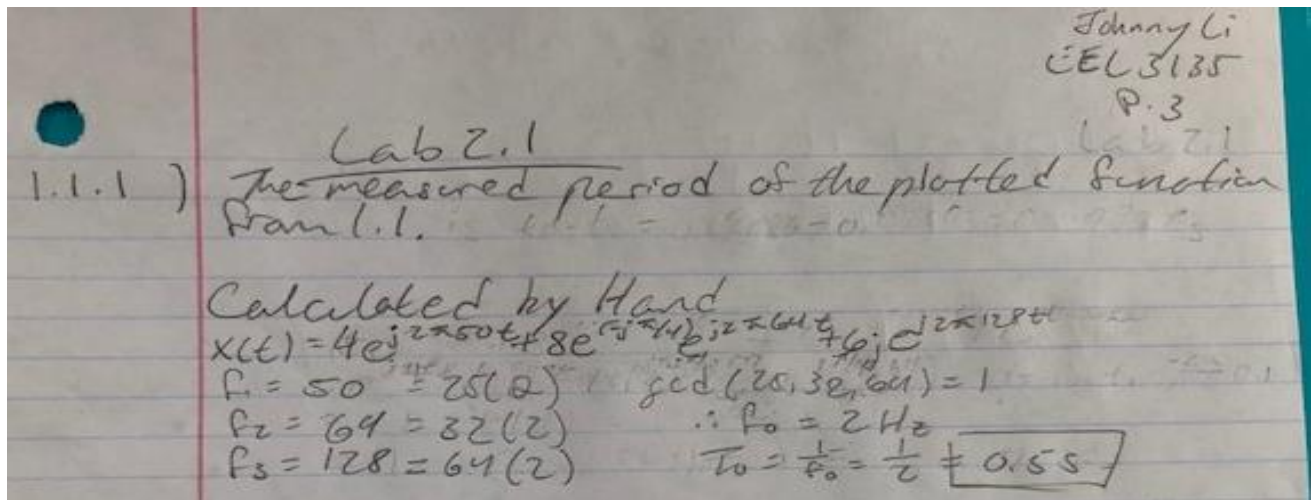 Johnny Li
EEL 3135
P. 3
Lab 2.1
1.1.1 ) The measured period of the plotted function
from 1.1.
Calculated by Hand
x(t) = 4e^{j2π50t} + 8e^{(-jπ/4)}e^{j2π64t} + 6je^{j2π128t}
f₁ = 50 = 25(2) gcd(25, 32, 64) = 1
f₂ = 64 = 32(2) ∴ f₀ = 2 Hz
f₃ = 128 = 64(2) T₀ = 1/f₀ = 1/2 = 0.5s